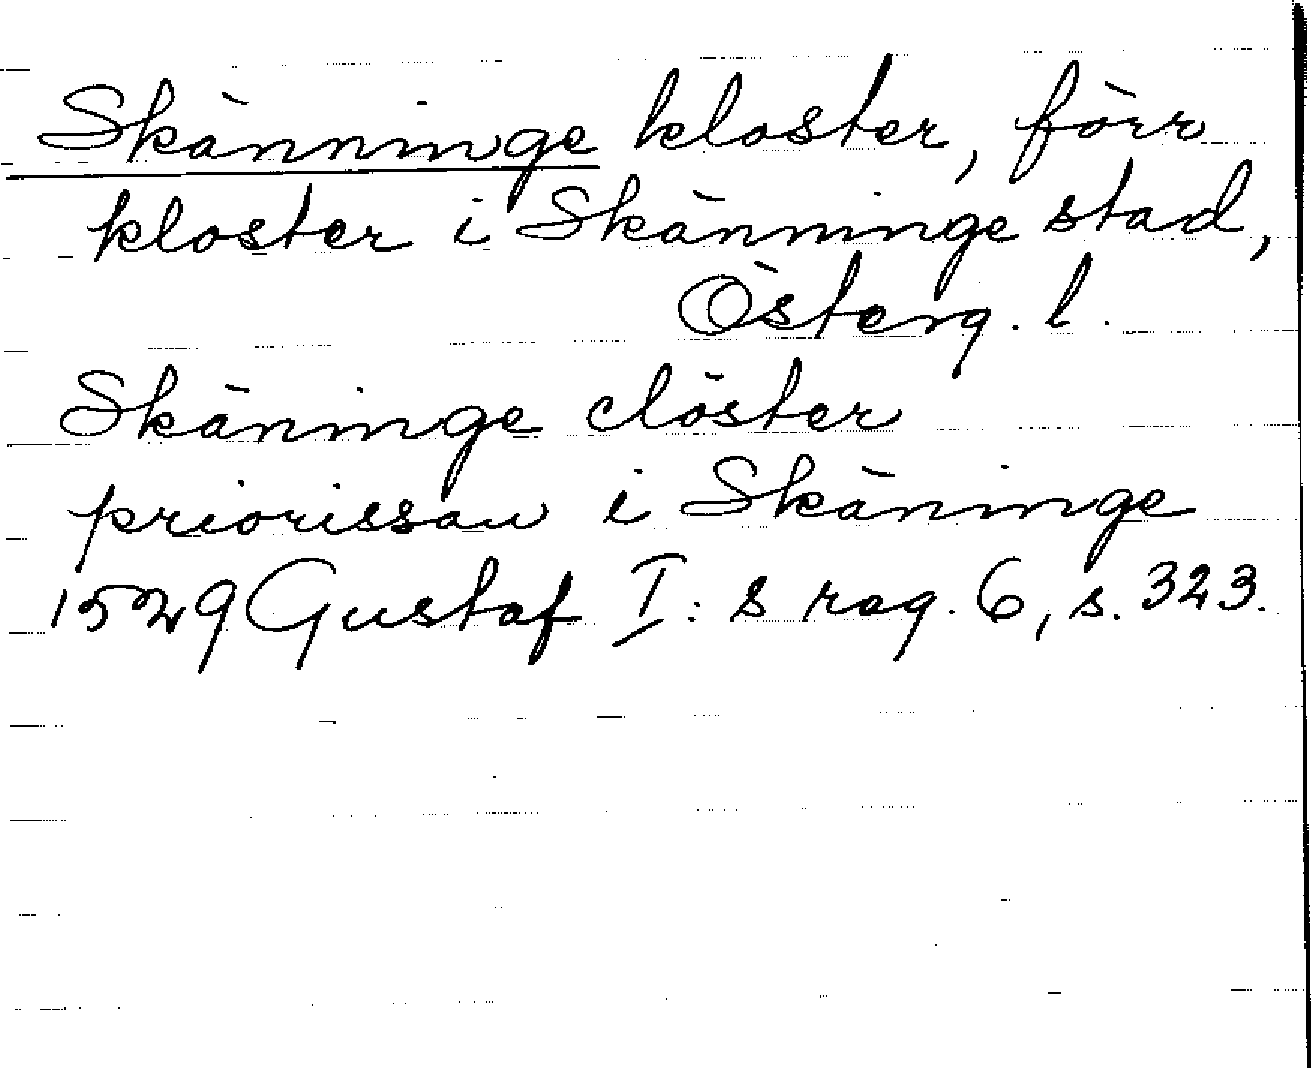 Skänninge kloster, förr
kloster i Skänninge stad,
Österg. l.
Skäninge clöster
priorissan i Skäninge
1529 Gustaf I: s reg. 6, s. 323.